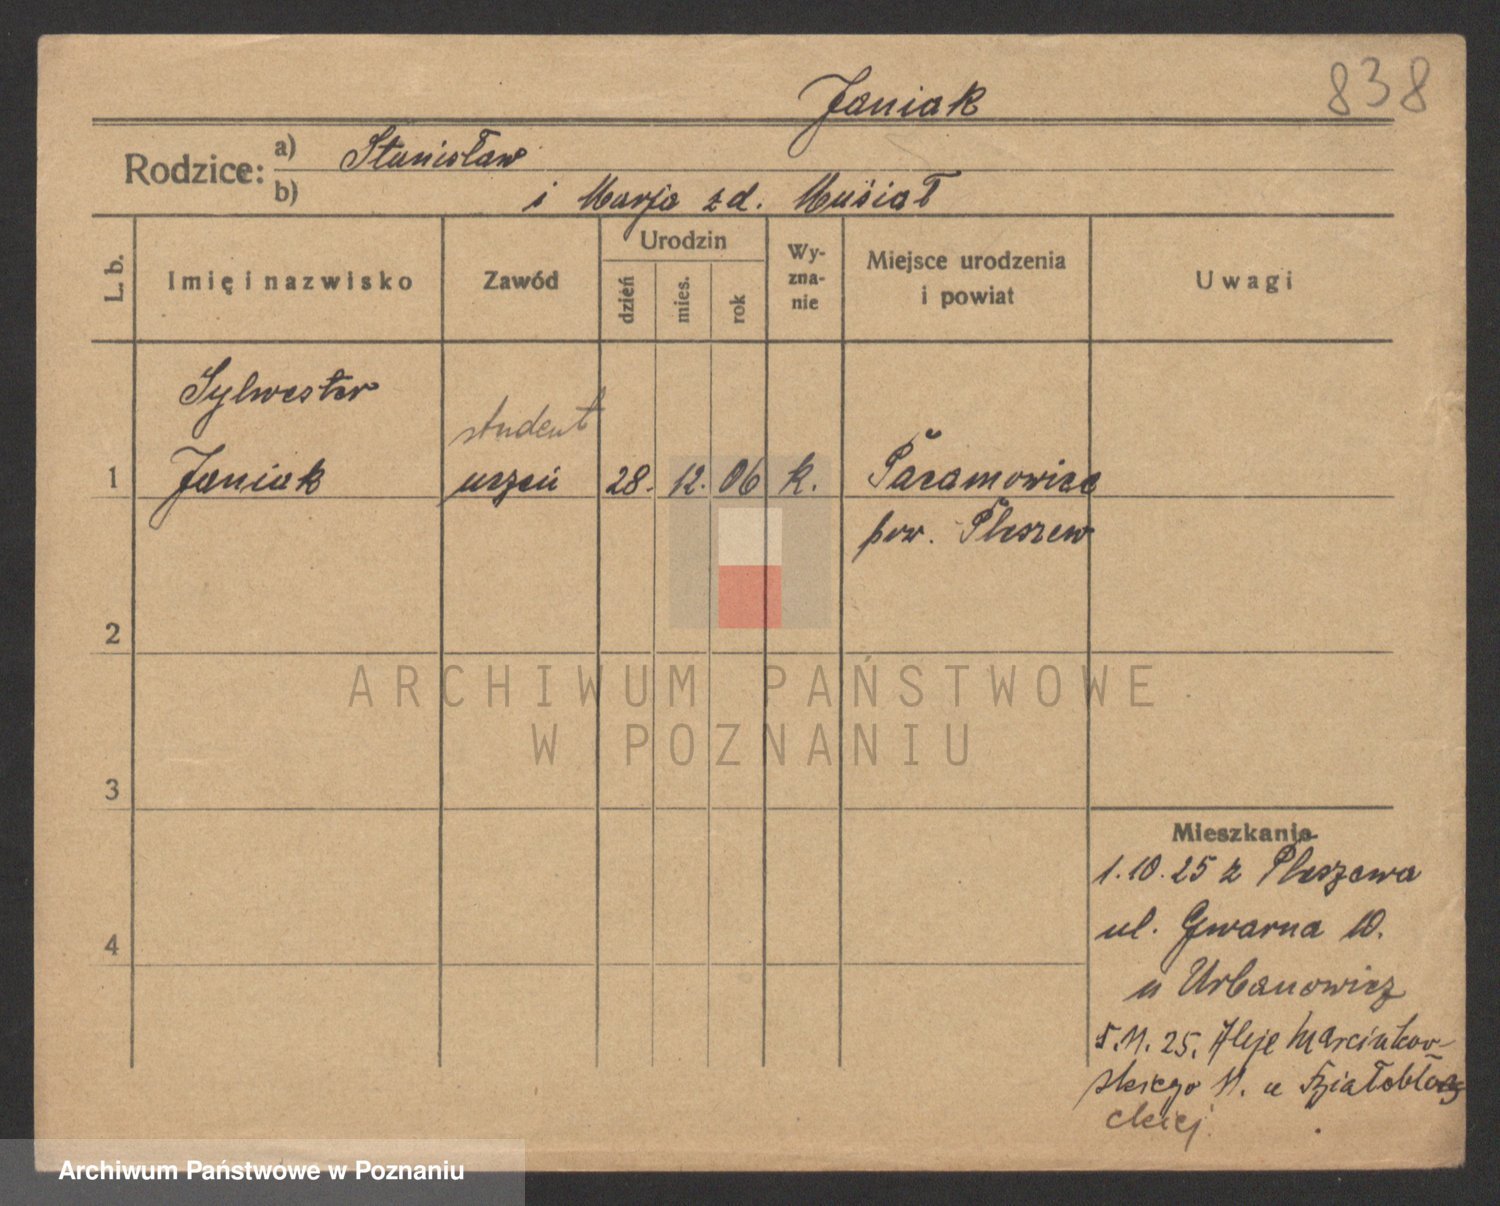 838
Janiak
Rodzice: a) Stanisław
b) i Marja zd. Musiał
L. b. Imię i nazwisko Zawód Urodzin dzień mies. rok Wy-zna-nie Miejsce urodzenia i powiat Uwagi
Sylwester
student
1 Janiak uczeń 28. 12. 06 k. Pacamowice
pow. Pleszew
2
ARCHIWUM PAŃSTWOWE
W POZNANIU
3
Mieszkanie
1.10.25 z Pleszewa
4 ul. Gwarna 10.
u Urbanowicz
5.11.25. Aleje Marcinkow-
skiego 11. u
ckiej
Archiwum Państwowe w Poznaniu